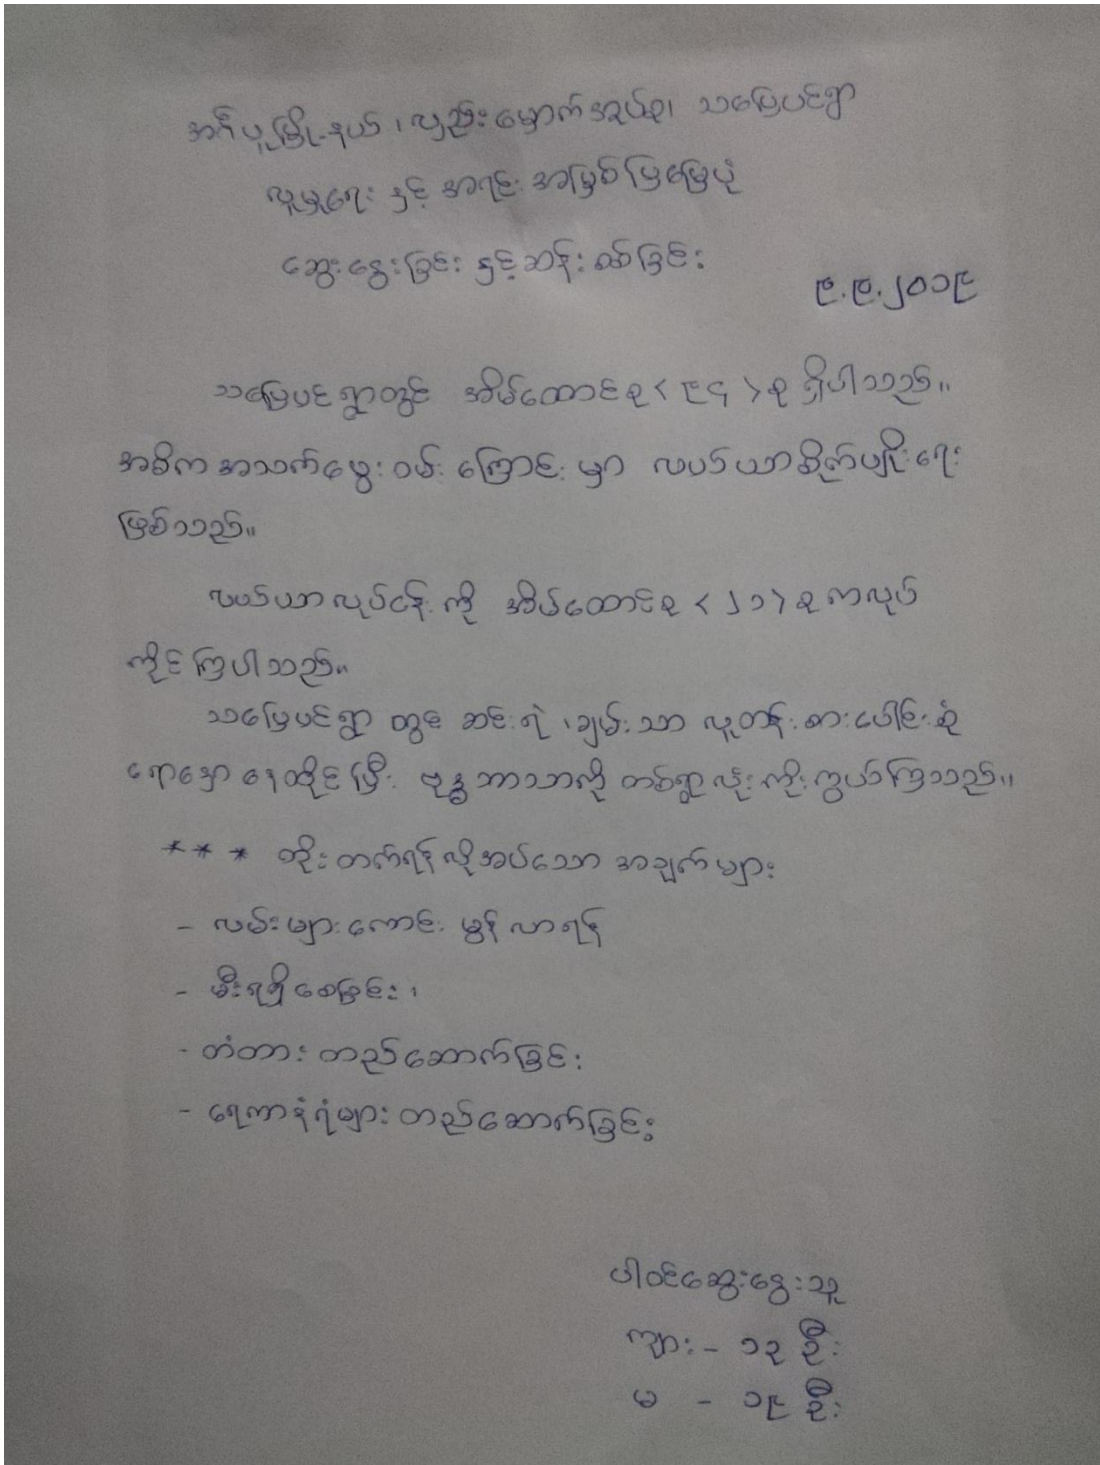 အင်္ဂပူမြို့နယ်၊ လှည်းမှောက်အုပ်စု၊ သမြေပင်ရွာ
လူမှုရေး နှင့် အရင်းအမြစ်ပြမြေပုံ
ဆွေးနွေးခြင်း နှင့် ဆန်းစစ်ခြင်း
၉.၉.၂၀၁၉
သမြေပင်ရွာတွင် အိမ်ထောင်စု < ၉၄ > စု ရှိပါသည်။
အဓိက အသက်မွေးဝမ်းကြောင်းမှာ လယ်ယာစိုက်ပျိုးရေး
ဖြစ်သည်။
လယ်ယာလုပ်ငန်းကို အိမ်ထောင်စု < ၂၁ > စု ကလုပ်
ကိုင်ကြပါသည်။
သမြေပင်ရွာ တွင် ဆင်းရဲ ၊ချမ်းသာ လူတန်းစားပေါင်းစုံ
ရောနှော နေထိုင်ပြီး ဗုဒ္ဓဘာသာကို တစ်ရွာလုံး ကိုးကွယ်ကြသည်။
*** တိုးတက်ရန်လိုအပ်သော အချက်များ
- လမ်းများကောင်းမွန်လာရန်
- မီးရရှိစေခြင်း ၊
- တံတား တည်ဆောက်ခြင်း
- ရေကာနံရံများ တည်ဆောက်ခြင်း
ပါဝင်ဆွေးနွေးသူ
ကျား - ၁၃ ဦး
မ - ၁၉ ဦး